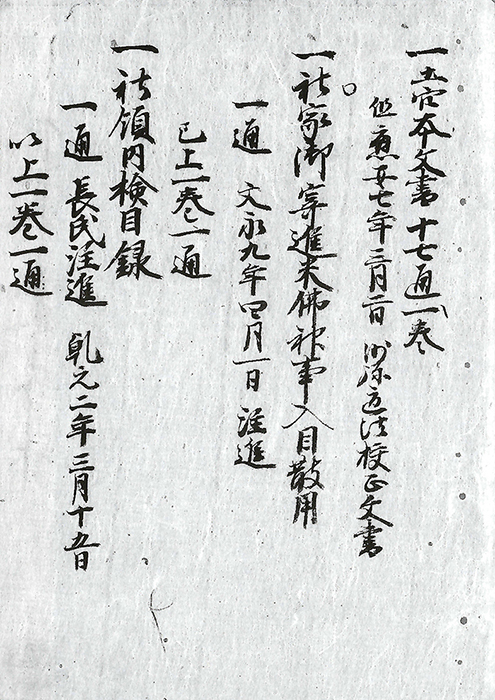 一土穴本文書十七通一巻
但應安七年三月二日沙弥道法校正文書
一社家御寄進米佛神事入目散用
一通 文永九年四月一日注進
已上一巻一通
一社領内検目録
一通 長氏注進 乹元二年三月十五日
以上一巻一通